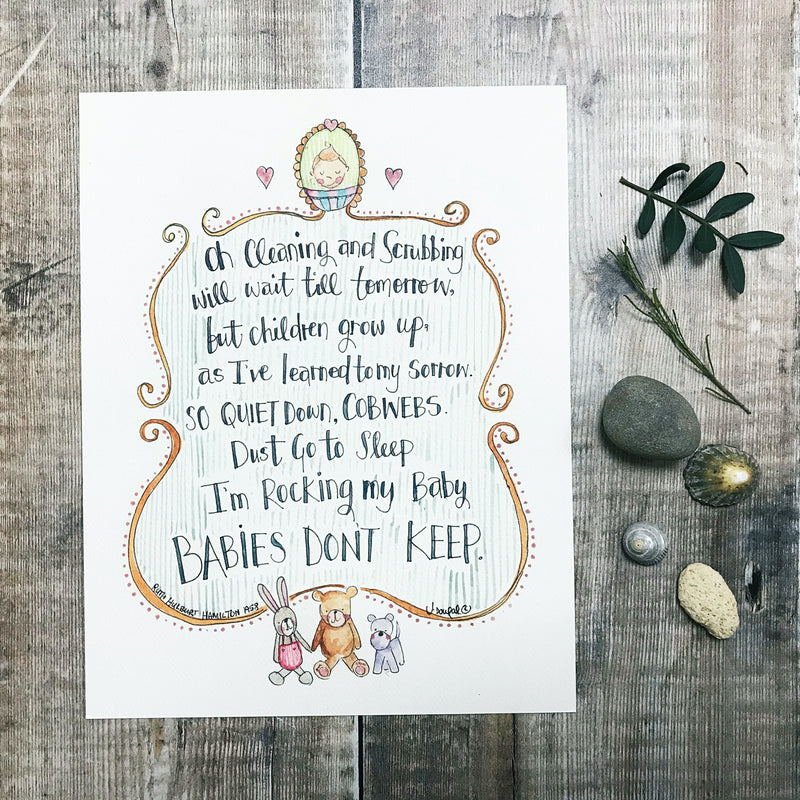 Oh Cleaning and Scrubbing
will wait till tomorrow,
but children grow up,
as I've learned to my sorrow.
SO QUIET DOWN, COBWEBS.
Dust Go to Sleep
I'm Rocking my Baby
BABIES DON'T KEEP.
RUTH HULBURT HAMILTON 1958